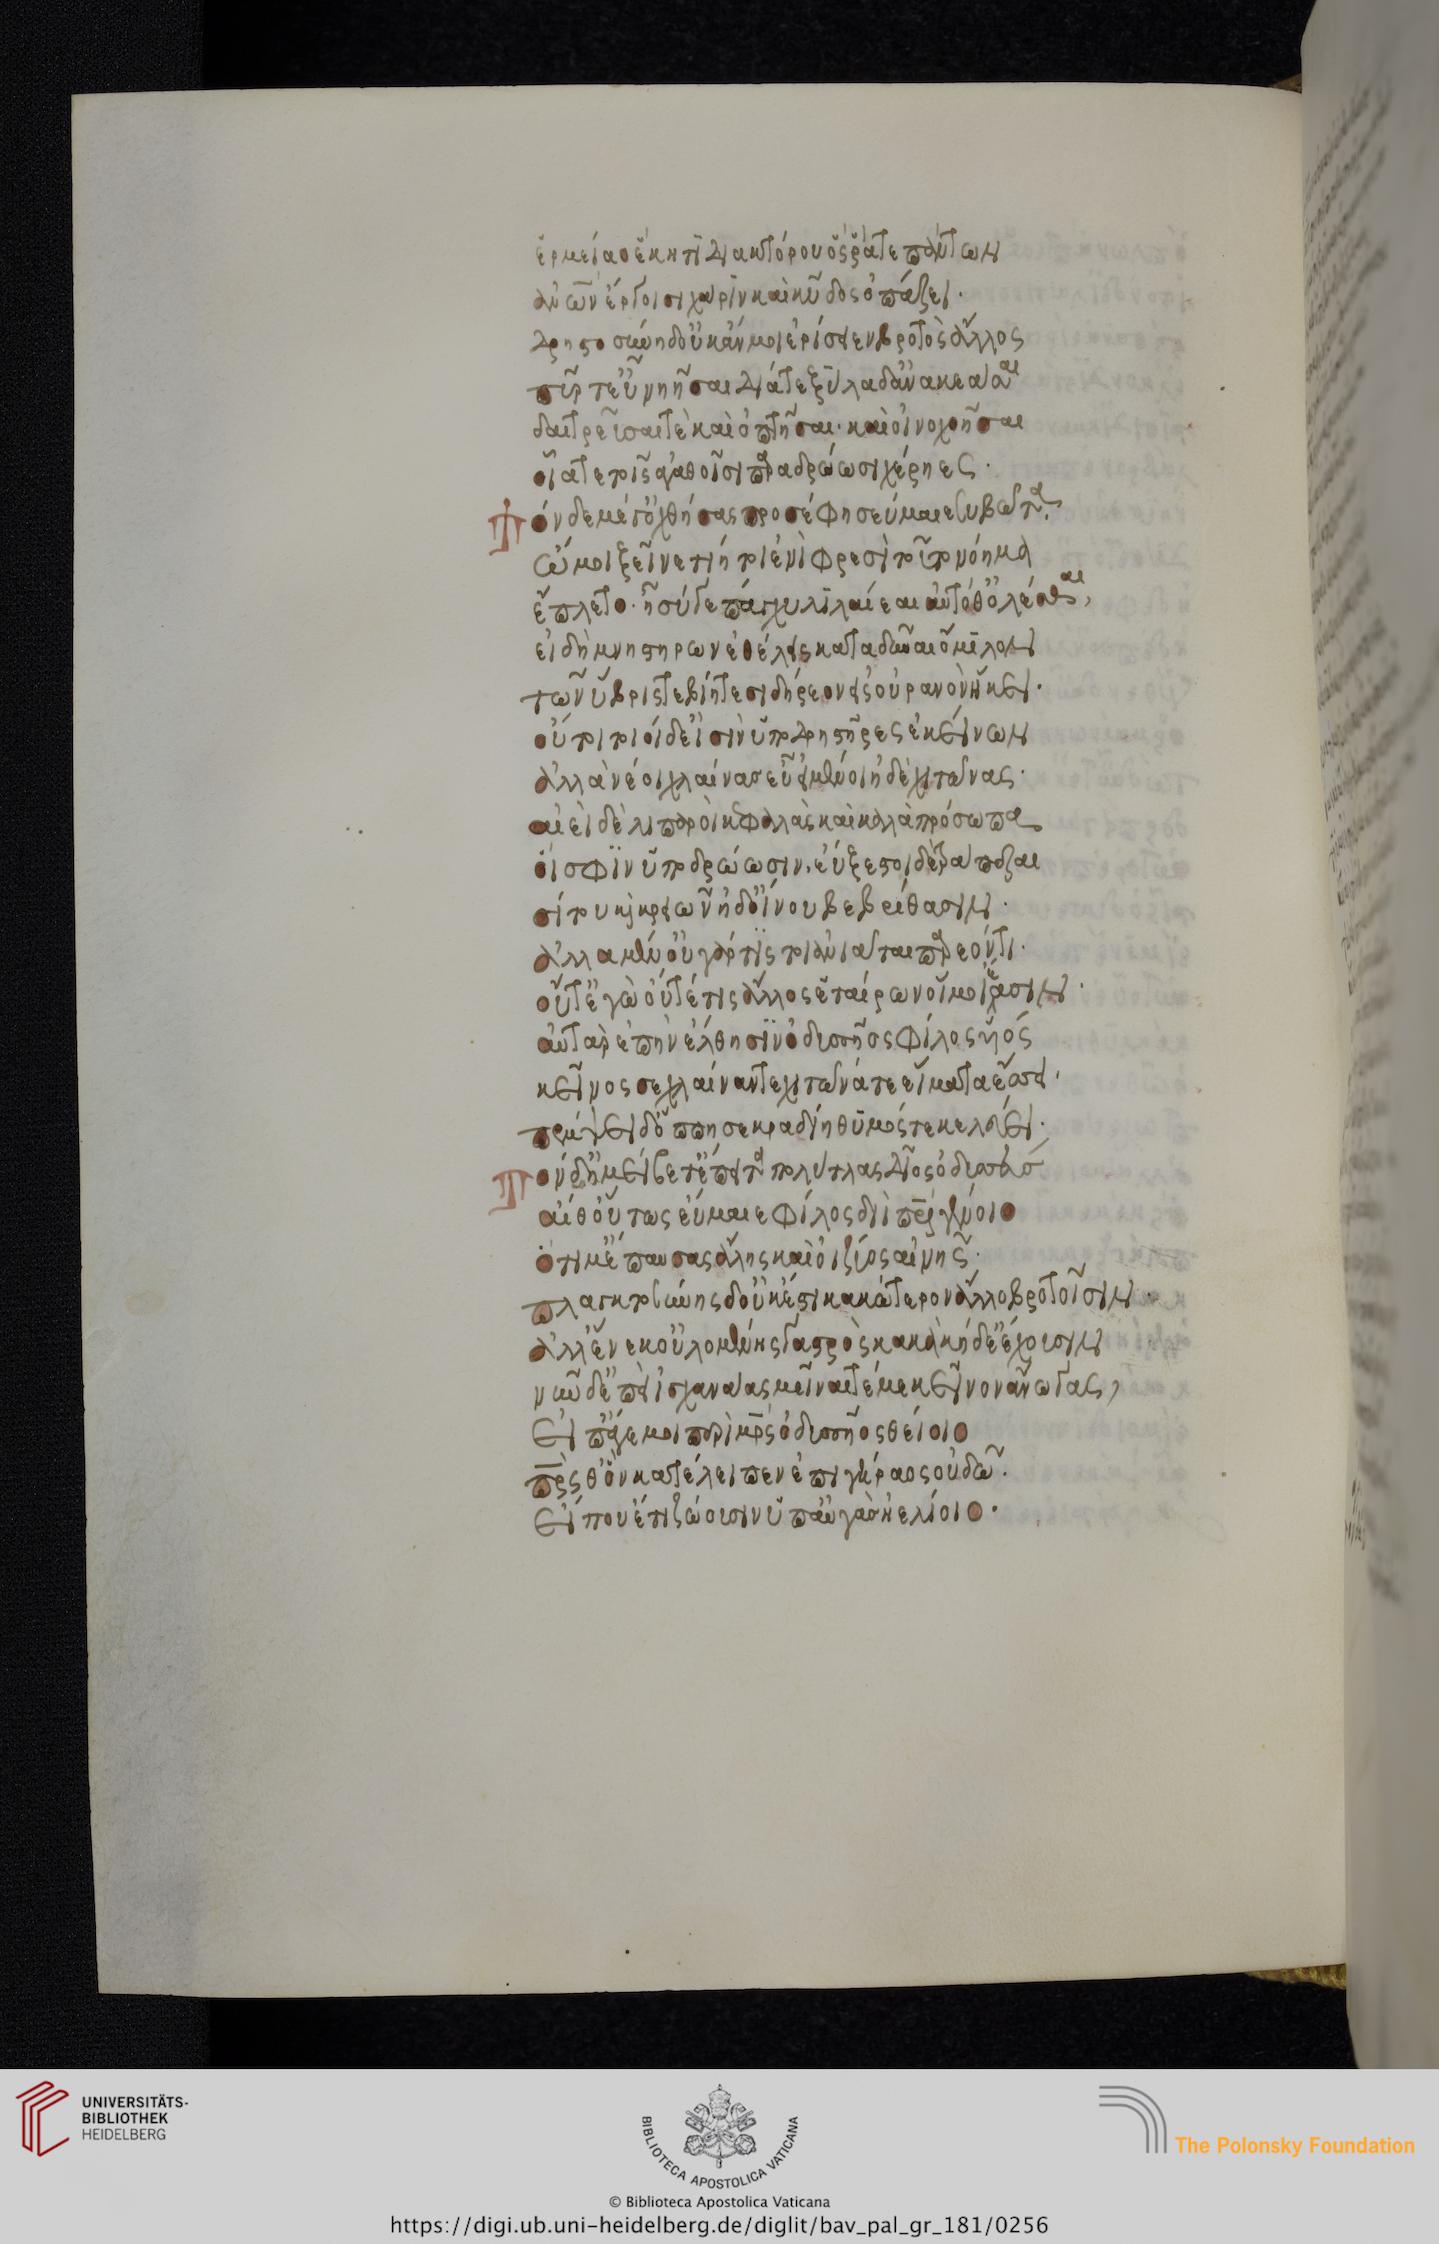 ἑρμείαο ἕκητι διακτόρου ὅς ῥά τε πάντων
ἀνθρώπων ἔργοισι χάριν καὶ κῦδος ὀπάζει·
δρηστοσύνῃ δ' οὐκ ἄν μοι ἐρίσειεν βροτὸς ἄλλος
πῦρ τ' εὖ νηῆσαι διά τε ξύλα δανὰ κεάσαι
δαιτρεῦσαί τε καὶ ὀπτῆσαι· καὶ οἰνοχοῆσαι
οἷά τε τοῖς ἀγαθοῖσι παραδρώωσι χέρηες·
Τὸν δὲ μέγ' ὀχθήσας προσέφης εὔμαιε συβῶτα·
ὤμοι ξεῖνε τίη τοι ἐνὶ φρεσὶ τοῦτο νόημα
ἔπλετο· ἦ σύ γε πάγχυ λιλαίεαι αὐτόθ' ὀλέσθαι,
εἰ δὴ μνηστήρων ἐθέλεις καταδῦναι ὅμιλον
τῶν ὕβρίς τε βίη τε σιδήρεον οὐρανὸν ἥκει·
οὔ τοι τοιοίδ' εἰσὶν ὑποδρηστῆρες ἐκείνων
ἀλλὰ νέοι χλαίνας εὖ εἱμένοι ἠδὲ χιτῶνας·
αἰεὶ δὲ λιπαροὶ κεφαλὰς καὶ καλὰ πρόσωπα
οἵ σφιν ὑποδρώωσιν· ἐΰξεστοι δὲ τράπεζαι
σίτου καὶ κρειῶν ἠδ' οἴνου βεβρίθασιν·
ἀλλὰ μέν' οὐ γάρ τίς τοι ἀνιᾶται παρεόντι·
οὔτ' ἐγὼ οὔτέ τις ἄλλος ἑταίρων οἵ μοι ἔασιν·
αὐτὰρ ἐπὴν ἔλθησιν ὀδυσσῆος φίλος υἱός
κεῖνός σε χλαῖνάν τε χιτῶνά τε εἵματα ἕσσει·
πέμψει δ' ὅππη σε κραδίη θυμός τε κελεύει·
Τὸν δ' ἠμείβετ' ἔπειτα πολύτλας δῖος ὀδυσσεύς
αἴθ' οὕτως εὔμαιε φίλος διὶ πατρὶ γένοιο
ὅτι μ' ἔπαυσας ἄλης καὶ ὀϊζύος αἰνῆς·
πλαγκτοσύνης δ' οὐκ ἔστι κακώτερον ἄλλο βροτοῖσιν·
ἀλλ' ἕνεκ' οὐλομένης γαστρὸς κακὰ κήδε' ἔχουσιν
νῦν δ' ἐπεὶ ἰσχανάας μεῖναί τέ με κεῖνον ἄνωγας,
εἴπ' ἄγε μοι περὶ μητρὸς ὀδυσσῆος θείοιο
πατρός θ' ὃν κατέλειπεν ἐπὶ γήραος οὐδῷ·
εἴ που ἔτι ζώουσιν ὑπ' αὐγὰς ἠελίοιο·
UNIVERSITÄTS-
BIBLIOTHEK
HEIDELBERG
BIBLIOTECA APOSTOLICA VATICANA
The Polonsky Foundation
© Biblioteca Apostolica Vaticana
https://digi.ub.uni-heidelberg.de/diglit/bav_pal_gr_181/0256